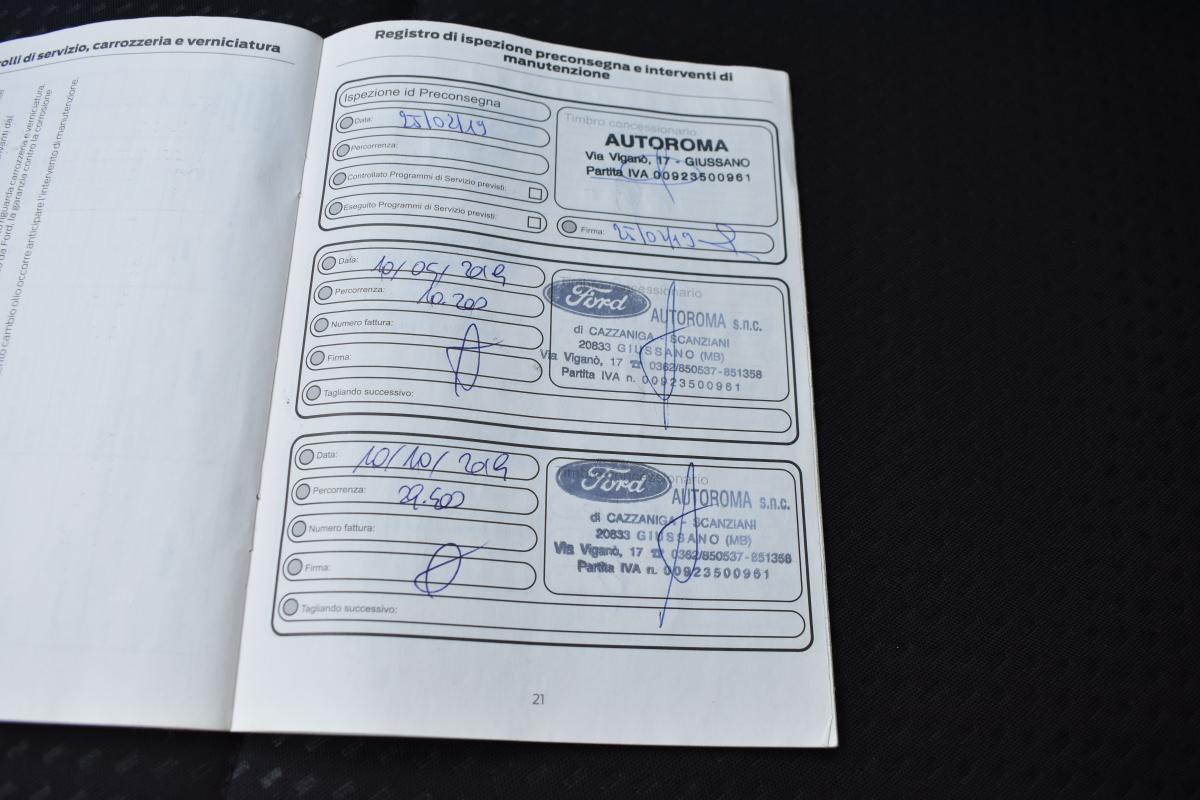 rolli di servizio, carrozzeria e verniciatura
riguarda carrozzeria e verniciatura
da Ford, la garanzia contro la corrosione
cambio olio occorre anticipare l'intervento di manutenzione.
Registro di ispezione preconsegna e interventi di
manutenzione
Ispezione id Preconsegna
Data: 25/02/19
Percorrenza:
Controllato Programmi di Servizio previsti:
Eseguito Programmi di Servizio previsti:
Timbro concessionario
AUTOROMA
Via Viganò, 17 - GIUSSANO
Partita IVA 00923500961
Firma: 25/02/19
Data: 10/05/2019
Percorrenza: 10.200
Numero fattura:
Firma:
Tagliando successivo:
Timbro concessionario
Ford
AUTOROMA s.n.c.
di CAZZANIGA - SCANZIANI
20833 GIUSSANO (MB)
Via Viganò, 17 ☎ 0362/850537-851358
Partita IVA n. 00923500961
Data: 10/10/2019
Percorrenza: 29.500
Numero fattura:
Firma:
Tagliando successivo:
Timbro concessionario
Ford
AUTOROMA s.n.c.
di CAZZANIGA - SCANZIANI
20833 GIUSSANO (MB)
Via Viganò, 17 ☎ 0362/850537-851358
Partita IVA n. 00923500961
21